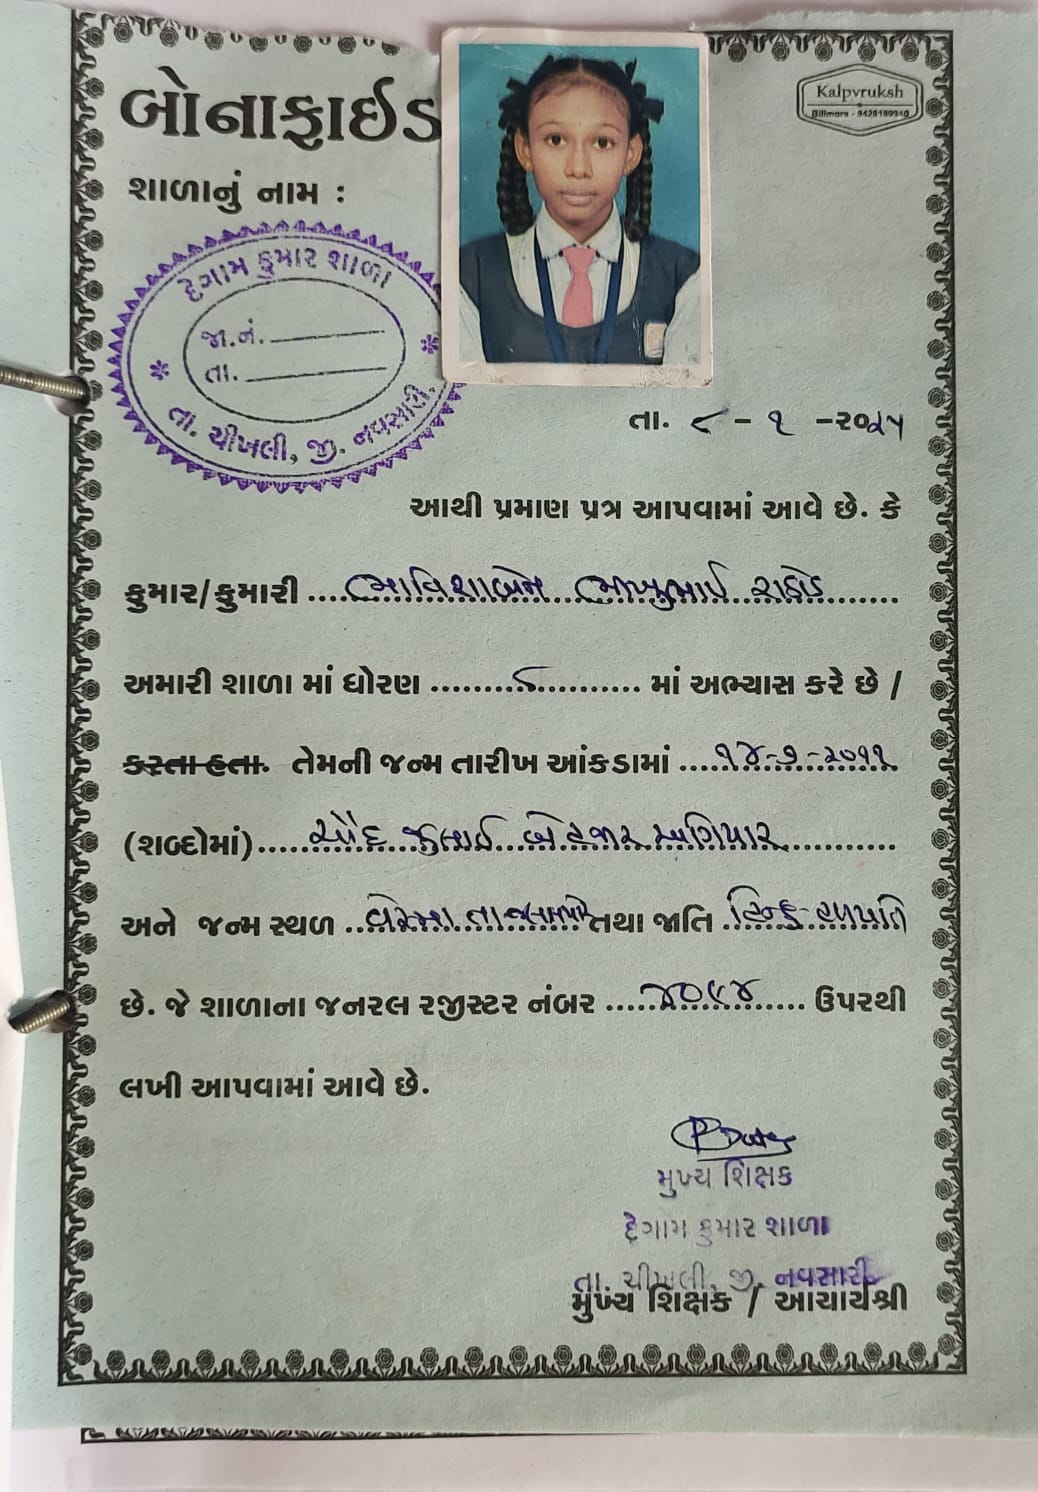 બોનાફાઈડ
Kalpvruksh
Billimora - 9428189940
શાળાનું નામ :
દેગામ કુમાર શાળા
જા.નં.
તા.
તા. ચીખલી, જી. નવસારી.
તા. ૮ - ૧ - ૨૦૨૫
આથી પ્રમાણ પત્ર આપવામાં આવે છે. કે
કુમાર/કુમારી ભાવિશાબેન ભીખુભાઈ રાઠોડ
અમારી શાળા માં ધોરણ ૮ માં અભ્યાસ કરે છે /
કરતા હતા. તેમની જન્મ તારીખ આંકડામાં ૧૪-૭-૨૦૧૧
(શબ્દોમાં) ચૌદ જુલાઈ બે હજાર અગિયાર
અને જન્મ સ્થળ તા તથા જાતિ હિન્દુ હળપતિ
છે. જે શાળાના જનરલ રજીસ્ટર નંબર ૪૦૯૪ ઉપરથી
લખી આપવામાં આવે છે.
મુખ્ય શિક્ષક
દેગામ કુમાર શાળા
તા. ચીખલી, જી. નવસારી
મુખ્ય શિક્ષક / આચાર્યશ્રી